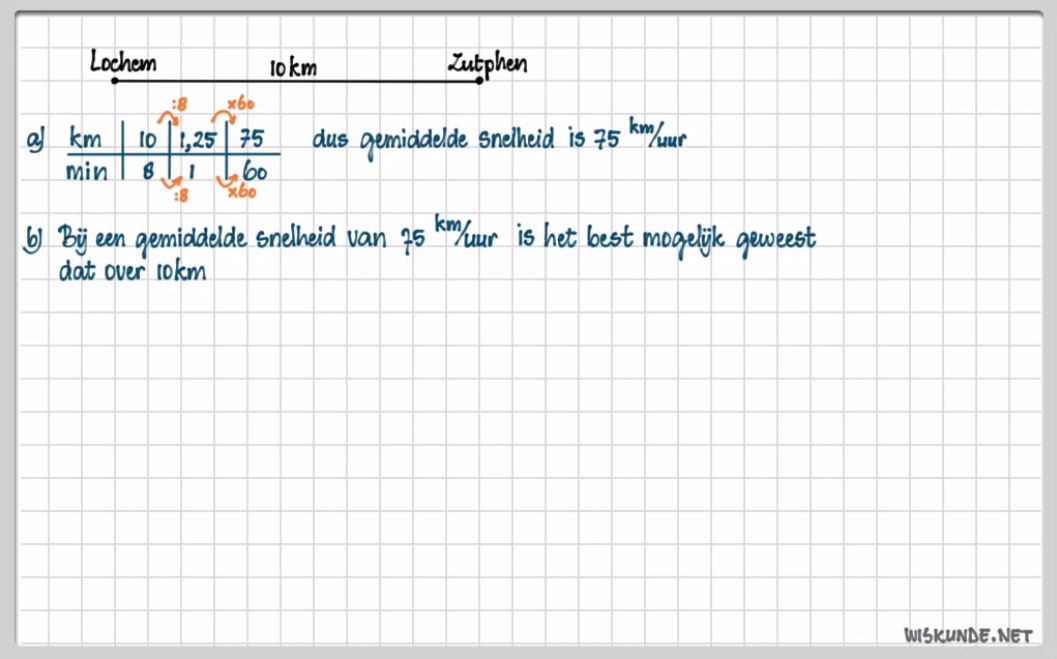 Lochem 10 km Zutphen
:8 x60
a) km | 10 | 1,25 | 75 dus gemiddelde snelheid is 75 km/uur
min | 8 | 1 | 60
:8 x60
b) Bij een gemiddelde snelheid van 75 km/uur is het best mogelijk geweest
dat over 10 km
WISKUNDE.NET